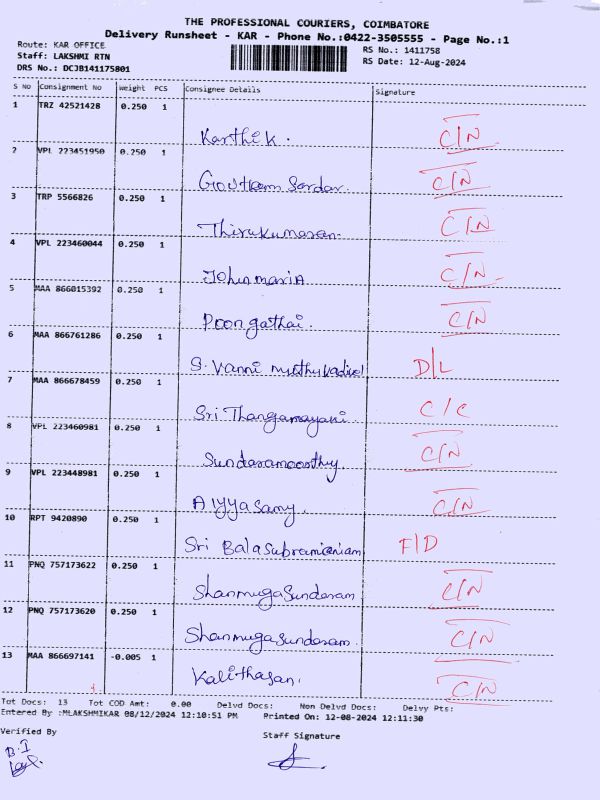 THE PROFESSIONAL COURIERS, COIMBATORE
Delivery Runsheet - KAR - Phone No.:0422-3505555 - Page No.:1
Route: KAR OFFICE RS No.: 1411758
Staff: LAKSHMI RTN RS Date: 12-Aug-2024
DRS No.: DCJB141175801
S No Consignment No Weight PCS Consignee Details Signature
1 TRZ 42521428 0.250 1
Karthik. C/N
2 VPL 223451950 0.250 1
Goutham Sardar C/N
3 TRP 5566826 0.250 1
Thirukumaran. C/N
4 VPL 223460044 0.250 1
John maria C/N
5 MAA 866015392 0.250 1
Poongathai. C/N
6 MAA 866761286 0.250 1
S. Vanni muthuvadivel D/L
7 MAA 866678459 0.250 1
Sri Thangamayani. C/C
8 VPL 223460981 0.250 1
Sundaramoorthy C/N
9 VPL 223448981 0.250 1
Aiyyasamy. C/N
10 RPT 9420890 0.250 1
Sri Balasubramianiam F/D
11 PNQ 757173622 0.250 1
Shanmugasundaram C/N
12 PNQ 757173620 0.250 1
Shanmugasundaram. C/N
13 MAA 866697141 -0.005 1
Kalithasan. C/N
Tot Docs: 13 Tot COD Amt: 0.00 Delvd Docs: Non Delvd Docs: Delvy Pts:
Entered By :MLAKSHMIKAR 08/12/2024 12:10:51 PM Printed On: 12-08-2024 12:11:30
Verified By Staff Signature